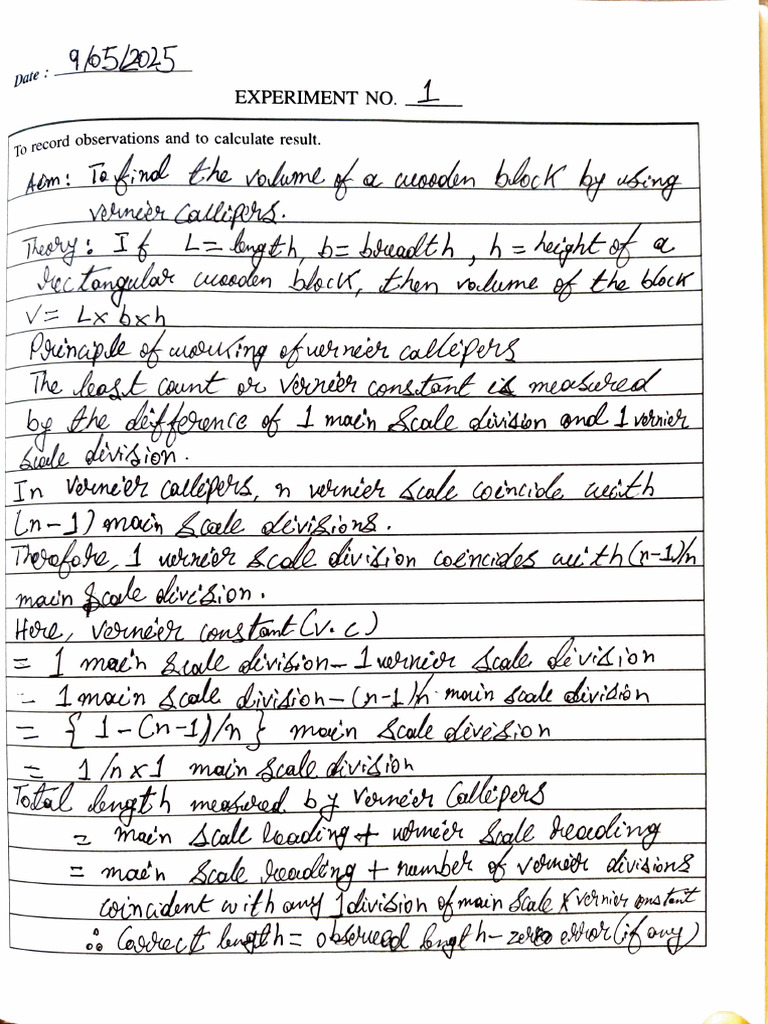 Date : 9/05/2025
EXPERIMENT NO. 1
To record observations and to calculate result.
Aim: To find the volume of a wooden block by using
vernier callipers.
Theory: If L = length, b = breadth, h = height of a
rectangular wooden block, then volume of the block
V = L×b×h
Principle of working of vernier callipers
The least count or vernier constant is measured
by the difference of 1 main scale division and 1 vernier
scale division.
In vernier callipers, n vernier scale coincide with
(n-1) main scale divisions.
Therefore, 1 vernier scale division coincides with (n-1)/n
main scale division.
Here, vernier constant (v.c)
= 1 main scale division - 1 vernier scale division
= 1 main scale division - (n-1)/n. main scale division
= { 1 - (n-1)/n } main scale division
= 1/n × 1 main scale division
Total length measured by vernier callipers
= main scale reading + vernier scale reading
= main scale reading + number of vernier divisions
coincident with any 1 division of main scale × vernier constant
∴ Correct length = observed length - zero error (if any)